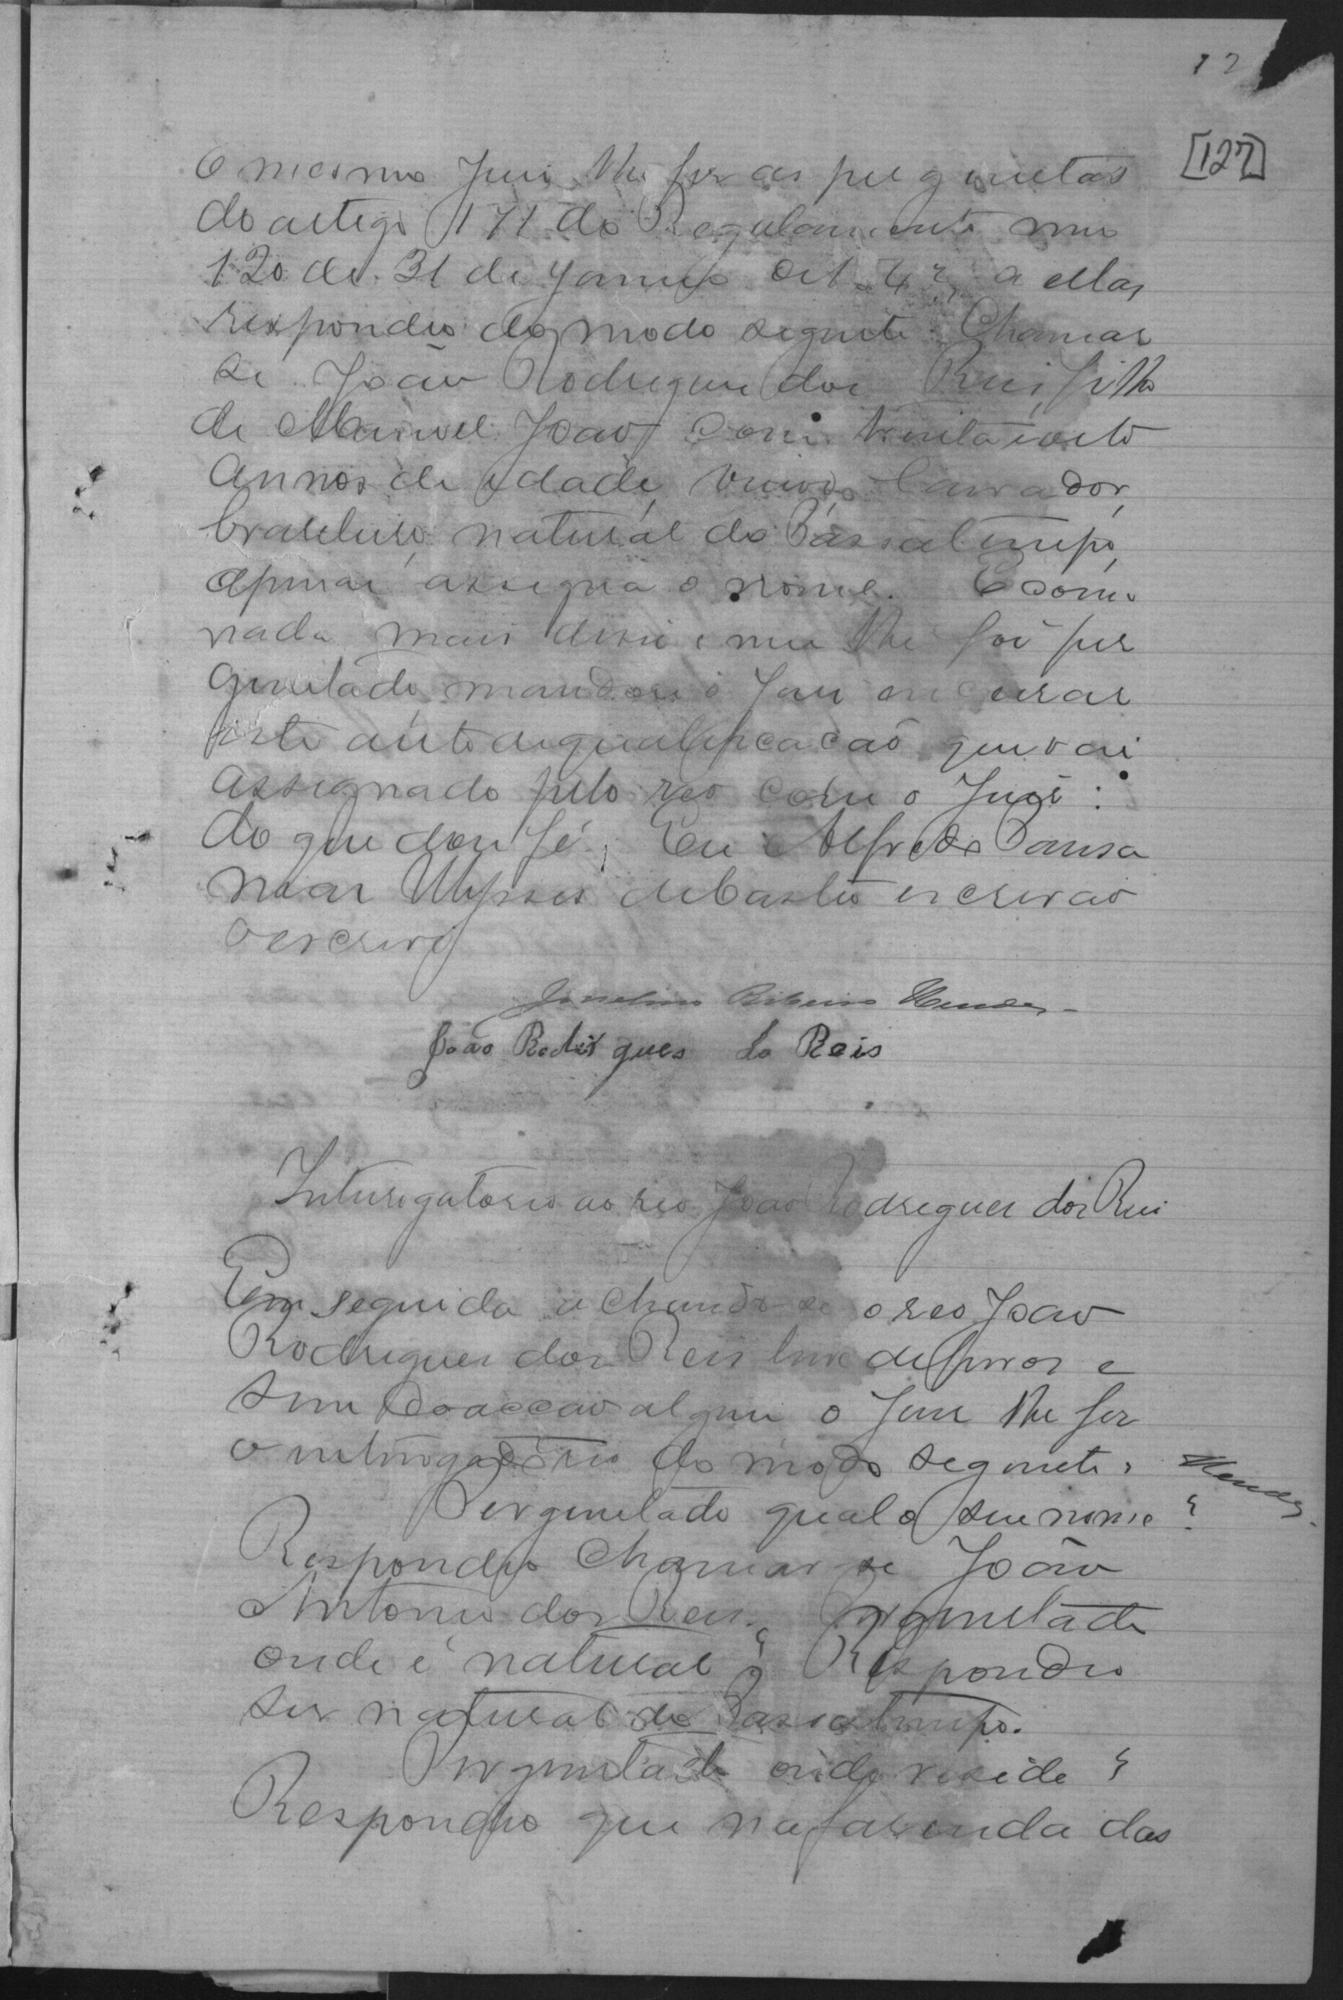 12
[127]
O mesmo Juis lhe fes as perguntas
do artego 171 do Regulamento nu
120 de 31 de Janeiro de 1842, a ellas
respondeo do modo seguinte: Chamar
se João Rodrigues dos Reis, filho
de Manoel João, com trinta e oito
annos de edade, viuvo, lavrador,
brasileiro, natural do Passatempo,
apenas assigna o nome. E como
nada mais disse e nem lhe foi per
guntado, mandou o Juis encerar
este auto de qualificacão que vai
assignado pelo reo com o Juis:
do que dou fé. Eu Alfredo
Ulysses de Castro escrivão
o escrevy
Ribeiro Mendes
João Rodrigues do Reis
Interogatorio ao reo João Rodrigues dos Reis
Em seguida achando se o reo João
Rodrigues dos Reis livre de ferros e
sem coaccão alguma o Juis lhe fes
o interogatorio do modo seguinte:
Mendes
Perguntado qual o seu nome?
Respondeo chamar se João
Antonio dos Reis. Perguntado
onde é natural? Respondeo
ser natural do Passatempo.
Perguntado onde reside?
Respondeo que na fasenda das